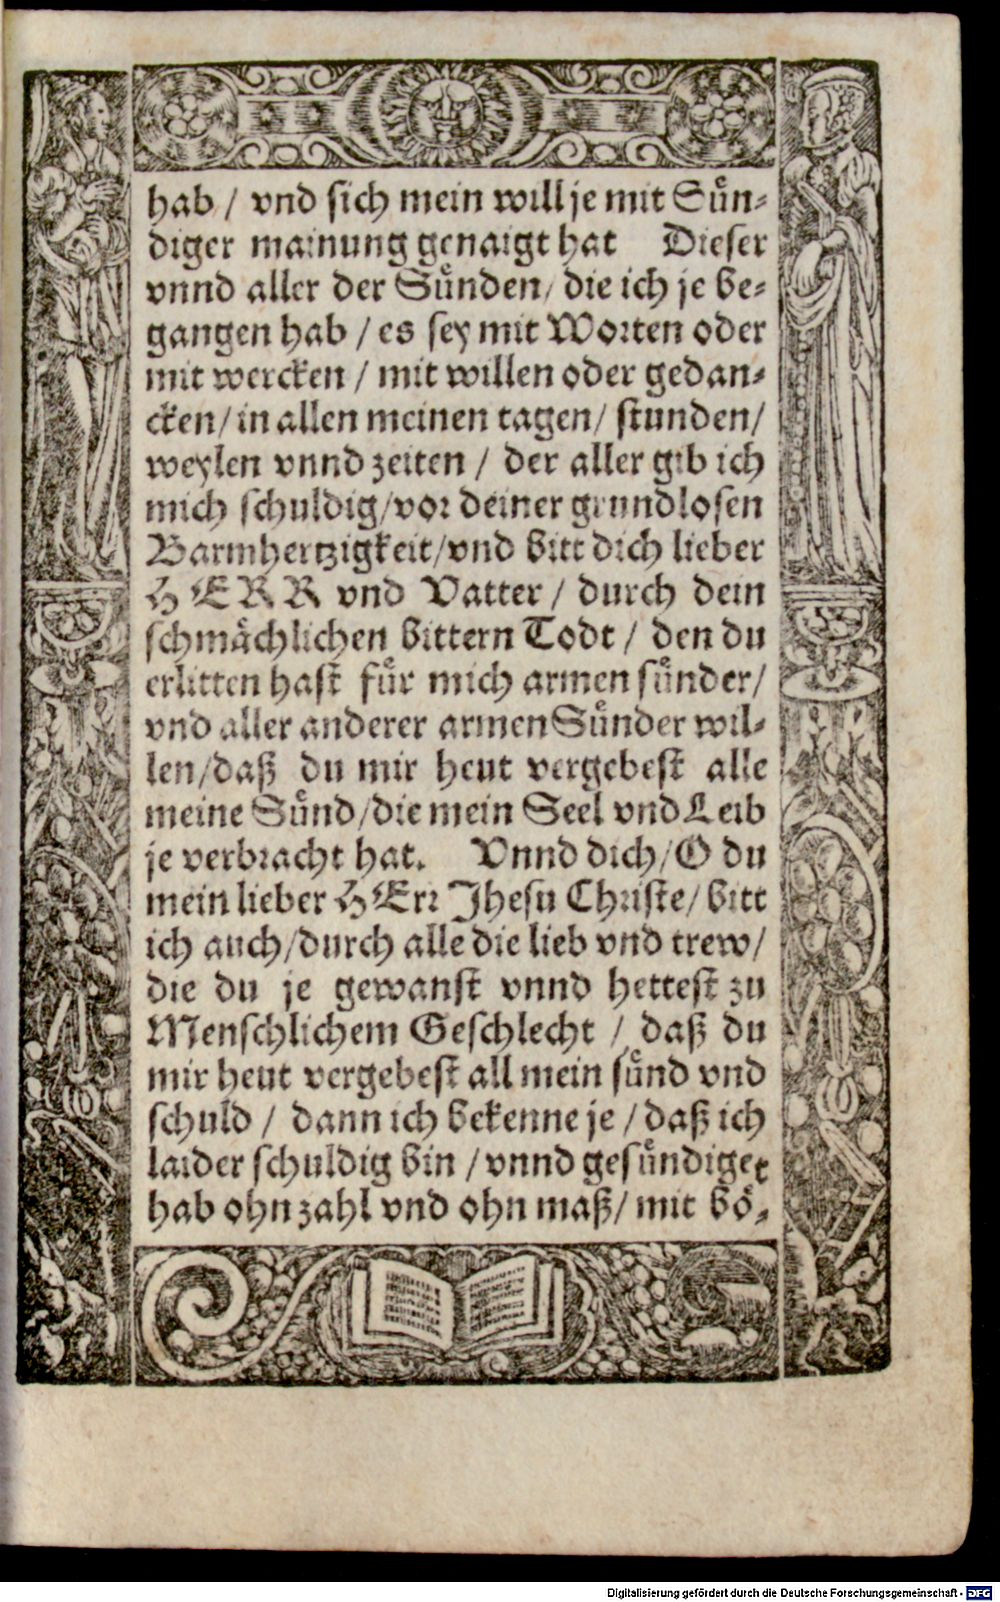 hab / vnd sich mein will je mit Sůn⸗
diger mainung genaigt hat Dieser
vnnd aller der Sůnden / die ich je be⸗
gangen hab / es sey mit Worten oder
mit wercken / mit willen oder gedan⸗
cken / in allen meinen tagen / stunden /
weylen vnnd zeiten / der aller gib ich
mich schuldig / vor deiner grundlosen
Barmhertzigkeit / vnd bitt dich lieber
HERR vnd Vatter / durch dein
schmåchlichen bittern Todt / den du
erlitten hast fůr mich armen sůnder /
vnd aller anderer armen Sůnder wil⸗
len / daß du mir heut vergebest alle
meine Sůnd / die mein Seel vnd Leib
je verbracht hat. Vnnd dich / O du
mein lieber HErr Jhesu Christe / bitt
ich auch / durch alle die lieb vnd trew /
die du je gewanst vnnd hettest zu
Menschlichem Geschlecht / daß du
mir heut vergebest all mein sůnd vnd
schuld / dann ich bekenne je / daß ich
laider schuldig bin / vnnd gesůndiget
hab ohn zahl vnd ohn maß / mit bö⸗
Digitalisierung gefördert durch die Deutsche Forschungsgemeinschaft - DFG